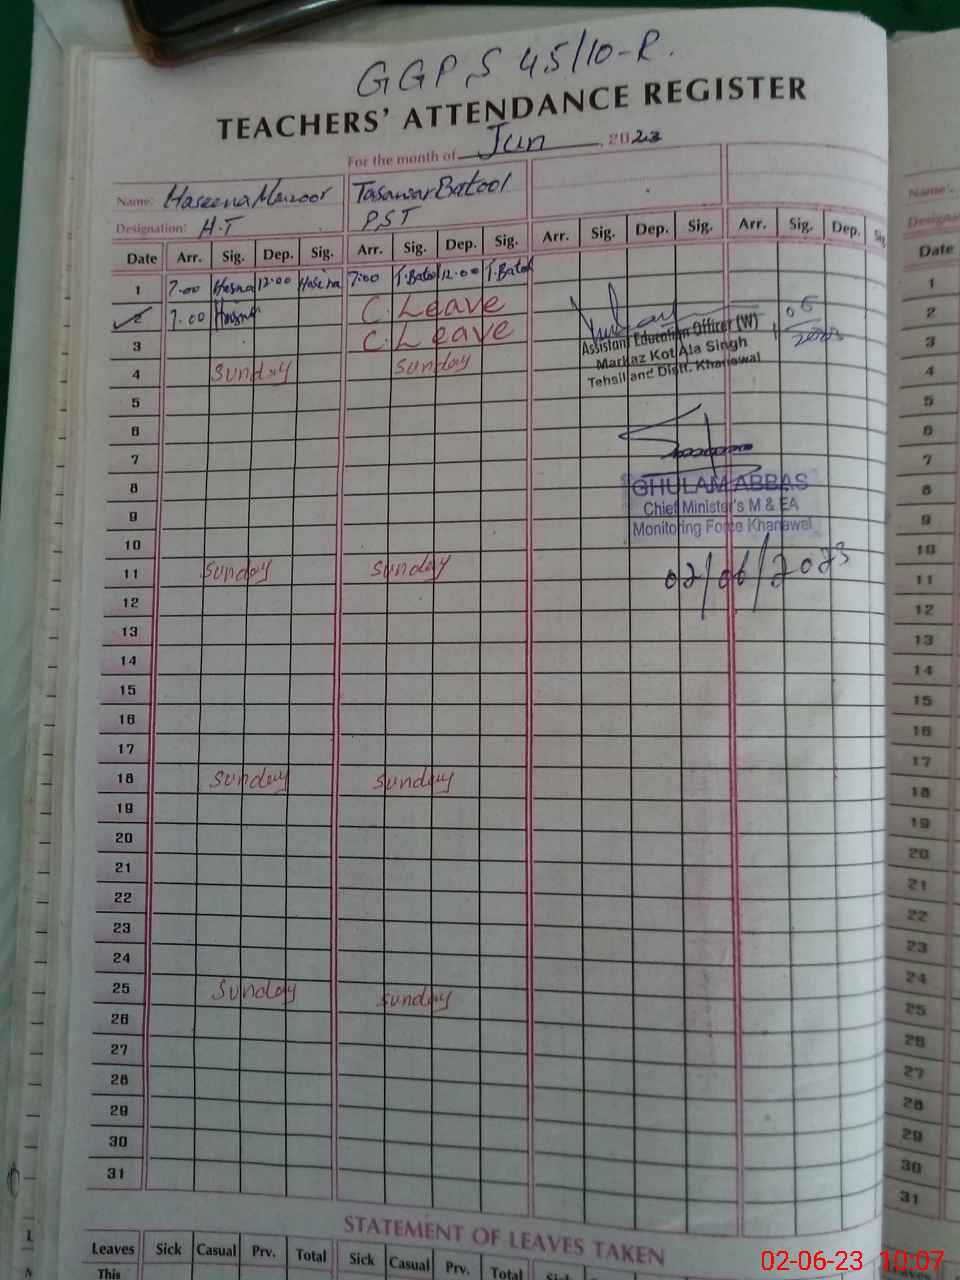 GGPS 45/10-R.
TEACHERS' ATTENDANCE REGISTER
For the month of Jun, 2023
Name: Haseena Manzoor Tasawar Batool
Designation: H.T PST
Date Arr. Sig. Dep. Sig. Arr. Sig. Dep. Sig. Arr. Sig. Dep. Sig. Arr. Sig. Dep. Sig
1 7.00 Hasina 12:00 Hasina 7:00 T.Batool 12.00 T.Batool
2 7.00 Hasina C.Leave
3 C.Leave
4 Sunday Sunday
Assistant Education Officer (W)
Markaz Kot Ala Singh
Tehsil and Distt. Khanewal
5
6
7
8
9
GHULAM ABBAS
Chief Minister's M & EA
Monitoring Force Khanewal
10
11 Sunday Sunday
02/06/2023
12
13
14
15
16
17
18 Sunday Sunday
19
20
21
22
23
24
25 Sunday Sunday
26
27
28
29
30
31
STATEMENT OF LEAVES TAKEN
Leaves Sick Casual Prv. Total Sick Casual Prv. Total Sick
This
Name:
Date
1
2
3
4
5
6
7
8
9
10
11
12
13
14
15
16
17
18
19
20
21
22
23
24
25
26
27
28
29
30
31
Leaves
02-06-23 10:07